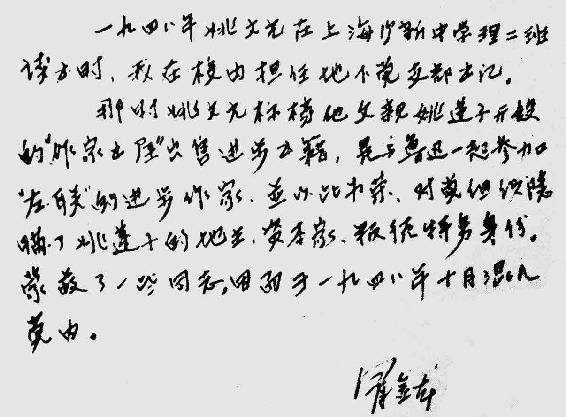 一九四八年姚文元在上海沪新中学理二班
读书时，我在校内担任地下党支部书记。
那时姚文元标榜他父亲姚蓬子开设
的“作家书屋”出售进步书籍，是与鲁迅一起参加
“左联”的进步作家，并以此为荣，对党组织隐
瞒了姚蓬子的地主、资本家、叛徒特务身份。
蒙蔽了一些同志，因而于一九四八年十月混入
党内。